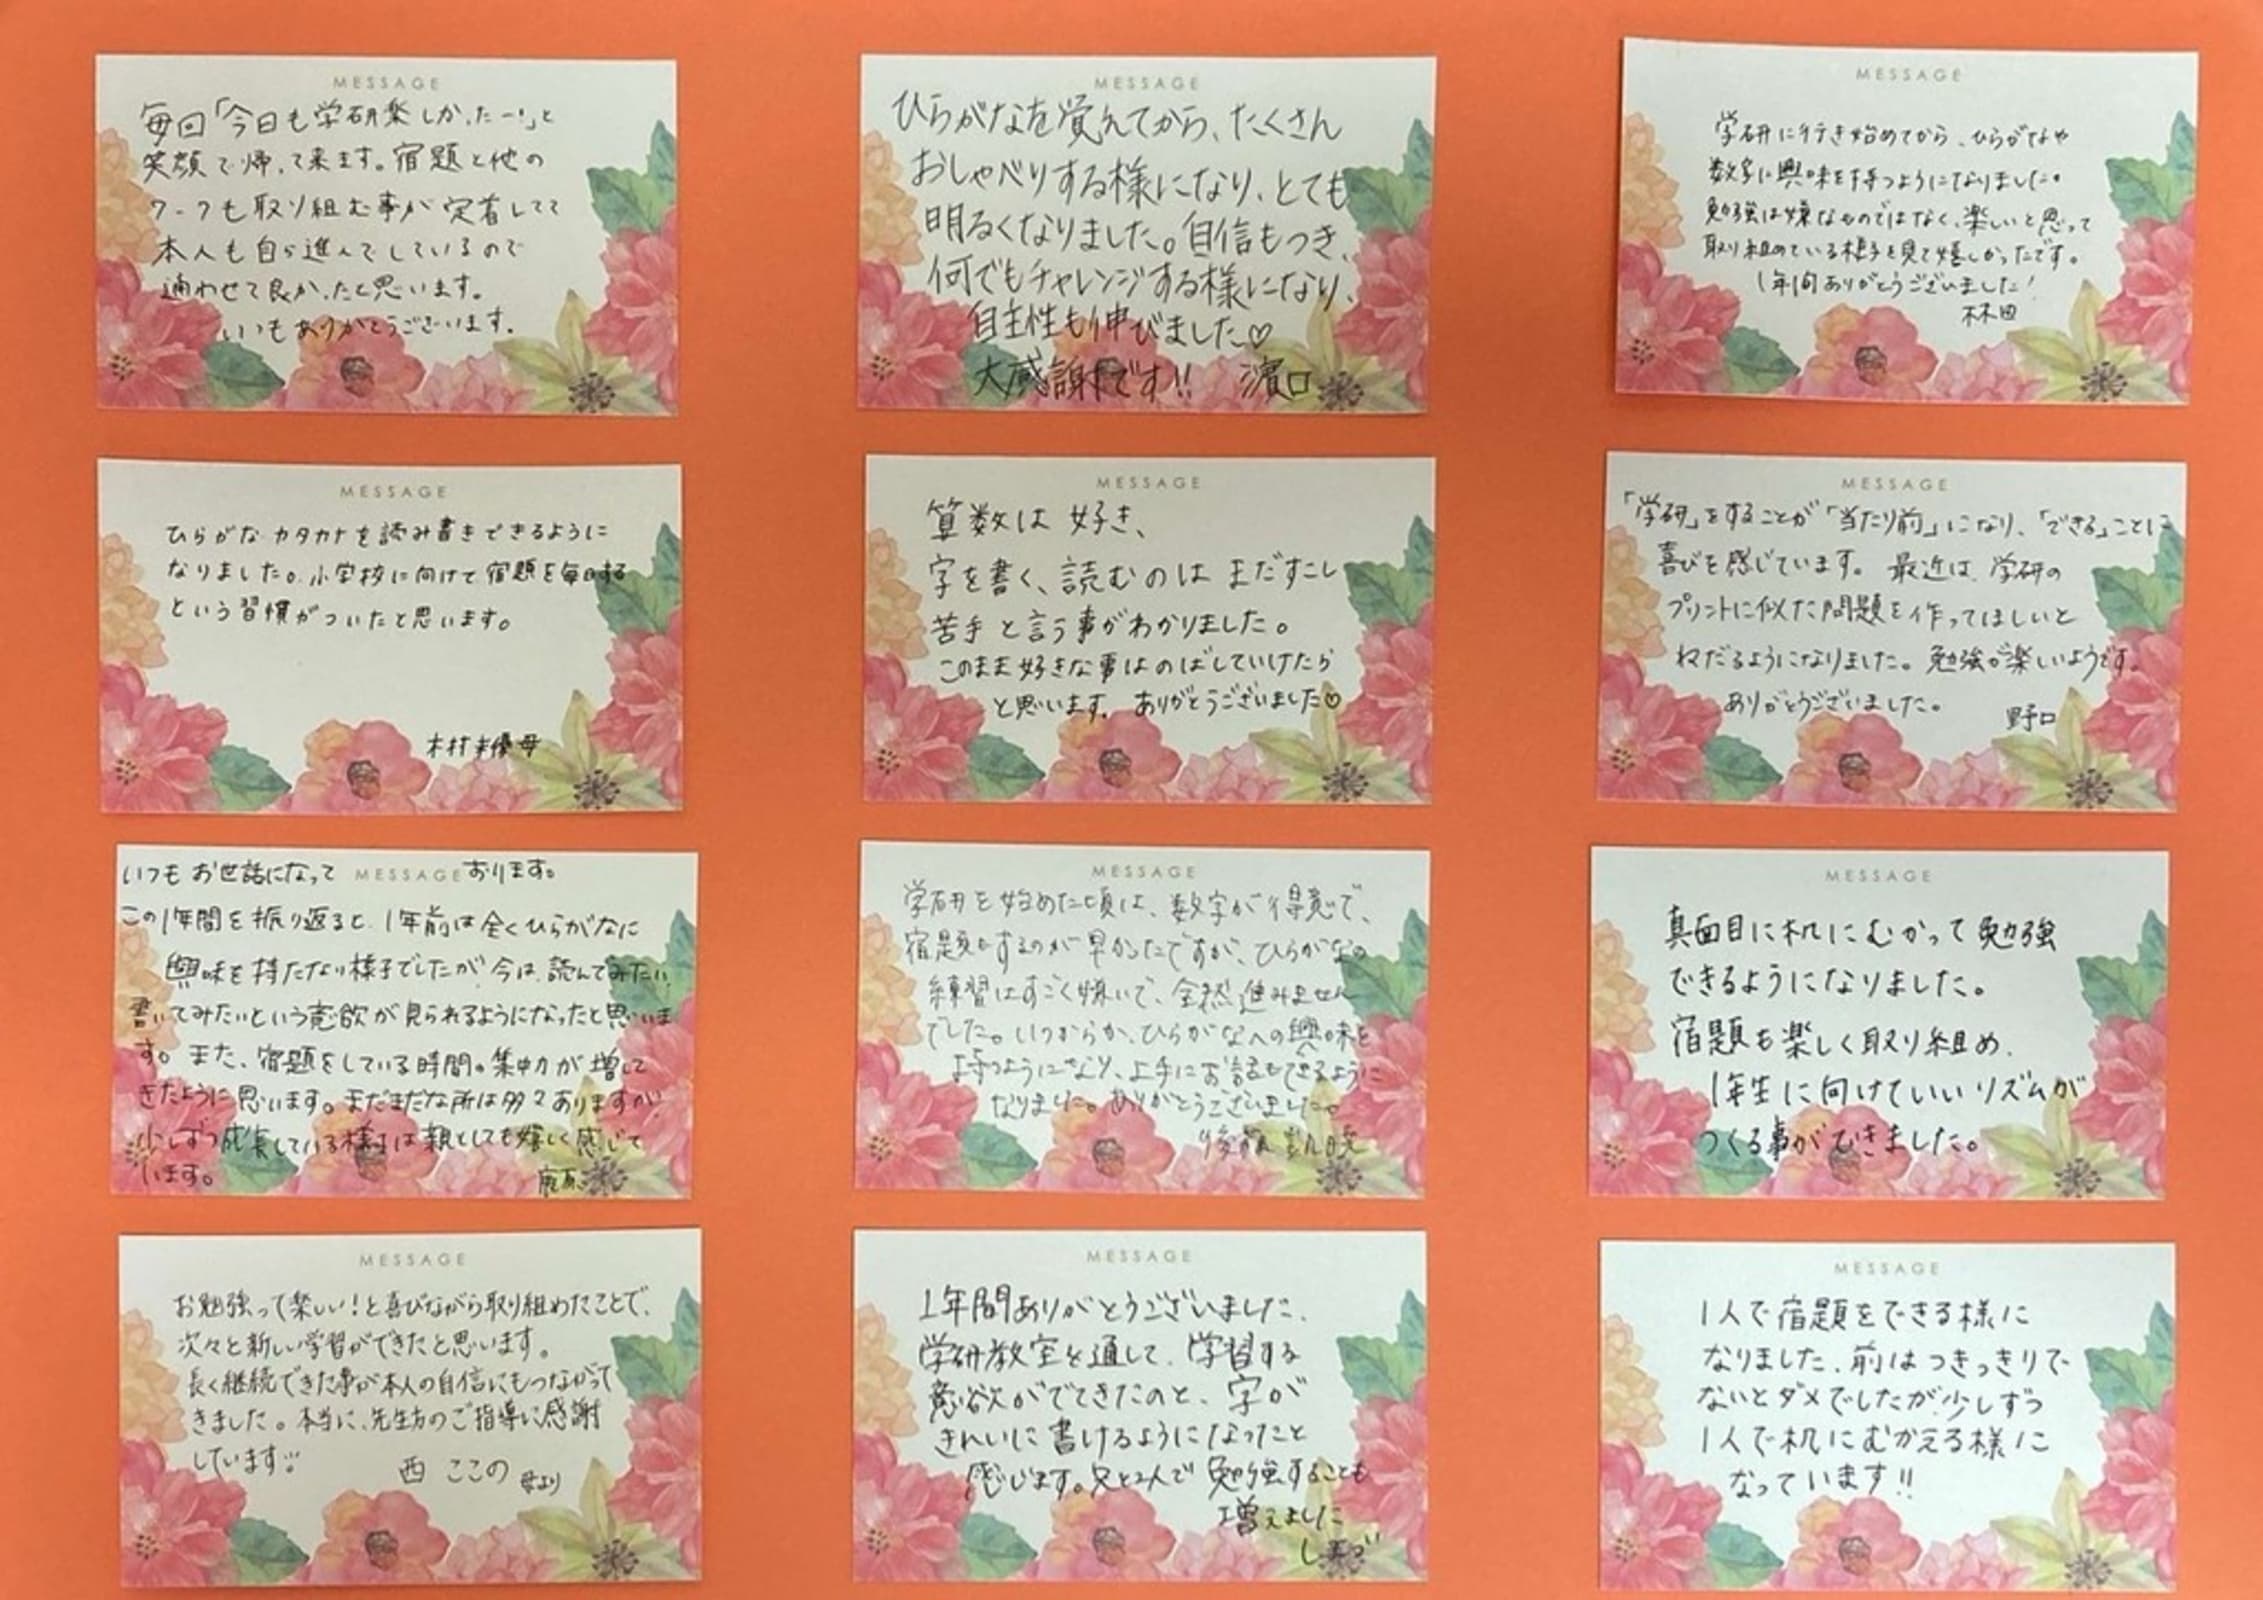 MESSAGE
毎回「今日も学研楽しかったー!」と
笑顔で帰って来ます。宿題と他の
ワークも取り組む事が定着してて
本人も自ら進んでしているので
通わせて良かったと思います。
いつもありがとうございます。
MESSAGE
ひらがなを覚えてから、たくさん
おしゃべりする様になり、とても
明るくなりました。自信もつき、
何でもチャレンジする様になり、
自主性も伸びました♡
大感謝です!! 濱口
MESSAGE
学研に行き始めてから、ひらがなや
数字に興味を持つようになりました。
勉強は嫌なものではなく、楽しいと思って
取り組めている様子を見て嬉しかったです。
1年間ありがとうございました!
林田
MESSAGE
ひらがなカタカナを読み書きできるように
なりました。小学校に向けて宿題を毎日する
という習慣がついたと思います。
木村 優 母
MESSAGE
算数は 好き、
字を書く、読むのは まだすこし
苦手 と言う事がわかりました。
このまま好きな事はのばしていけたら
と思います。ありがとうございました♡
MESSAGE
「学研」をすることが「当たり前」になり、「できる」ことに
喜びを感じています。最近は、学研の
プリントに似た問題を作ってほしいと
ねだるようになりました。勉強が楽しいようです。
ありがとうございました。 野口
いつもお世話になって MESSAGE おります。
この1年間を振り返ると、1年前は全くひらがなに
興味を持たない様子でしたが、今は、読んでみたい、
書いてみたいという意欲が見られるようになったと思いま
す。また、宿題をしている時間の集中力が増して
きたように思います。まだまだな所は多々ありますが、
少しずつ成長している様子は親としても嬉しく感じて
います。
MESSAGE
学研を始めた頃は、数字が得意で、
宿題をするのが早かったですが、ひらがなの
練習はすごく嫌いで、全然進みません
でした。いつからか、ひらがなへの興味を
持つようになり、上手にお話もできるように
なりました。ありがとうございました。
後藤
MESSAGE
真面目に机にむかって勉強
できるようになりました。
宿題も楽しく取り組め、
1年生に向けていいリズムが
つくる事ができました。
MESSAGE
お勉強って楽しい!と喜びながら取り組めたことで、
次々と新しい学習ができたと思います。
長く継続できた事が本人の自信にもつながって
きました。本当に、先生方のご指導に感謝
しています!!
西 ここの 母より
MESSAGE
1年間ありがとうございました。
学研教室を通して、学習する
意欲がでてきたのと、字が
きれいに書けるようになったこと
感じます。兄と2人で勉強することも
増えました
MESSAGE
1人で宿題をできる様に
なりました。前はつきっきりで
ないとダメでしたが、少しずつ
1人で机にむかえる様に
なっています!!